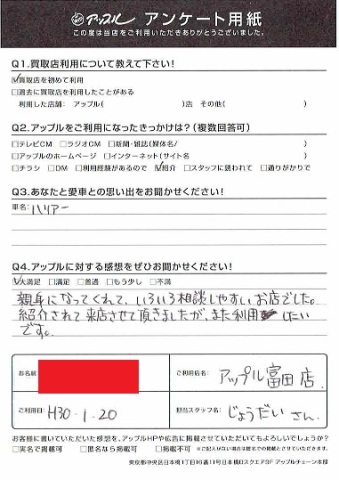 アップル アンケート用紙
この度は当店をご利用いただきありがとうございました。
Q1.買取店利用について教えて下さい!
☑買取店を初めて利用
□過去に買取店を利用したことがある
利用した店舗: アップル( )店 その他( )
Q2.アップルをご利用になったきっかけは?(複数回答可)
□テレビCM □ラジオCM □新聞・雑誌(媒体名/ )
□アップルのホームページ □インターネット(サイト名 )
□チラシ □DM □利用経験があるので ☑紹介 □スタッフに誘われて □通りがかりで
Q3.あなたと愛車との思い出をお聞かせください!
車名: ハリアー
Q4.アップルに対する感想をぜひお聞かせください!
☑大満足 □満足 □普通 □もう少し □不満
親身になってくれて、いろいろ相談しやすいお店でした。
紹介されて来店させて頂きましたが、また利用したい
です。
お名前
ご利用店名: アップル富田店.
ご利用日 H30.1.20
担当スタッフ名: じょうだい さん.
お客様に書いていただいた感想を、アップルHPや広告に掲載させていただいてもよろしいでしょうか?
□実名で掲載可 □匿名なら掲載可 □掲載不可